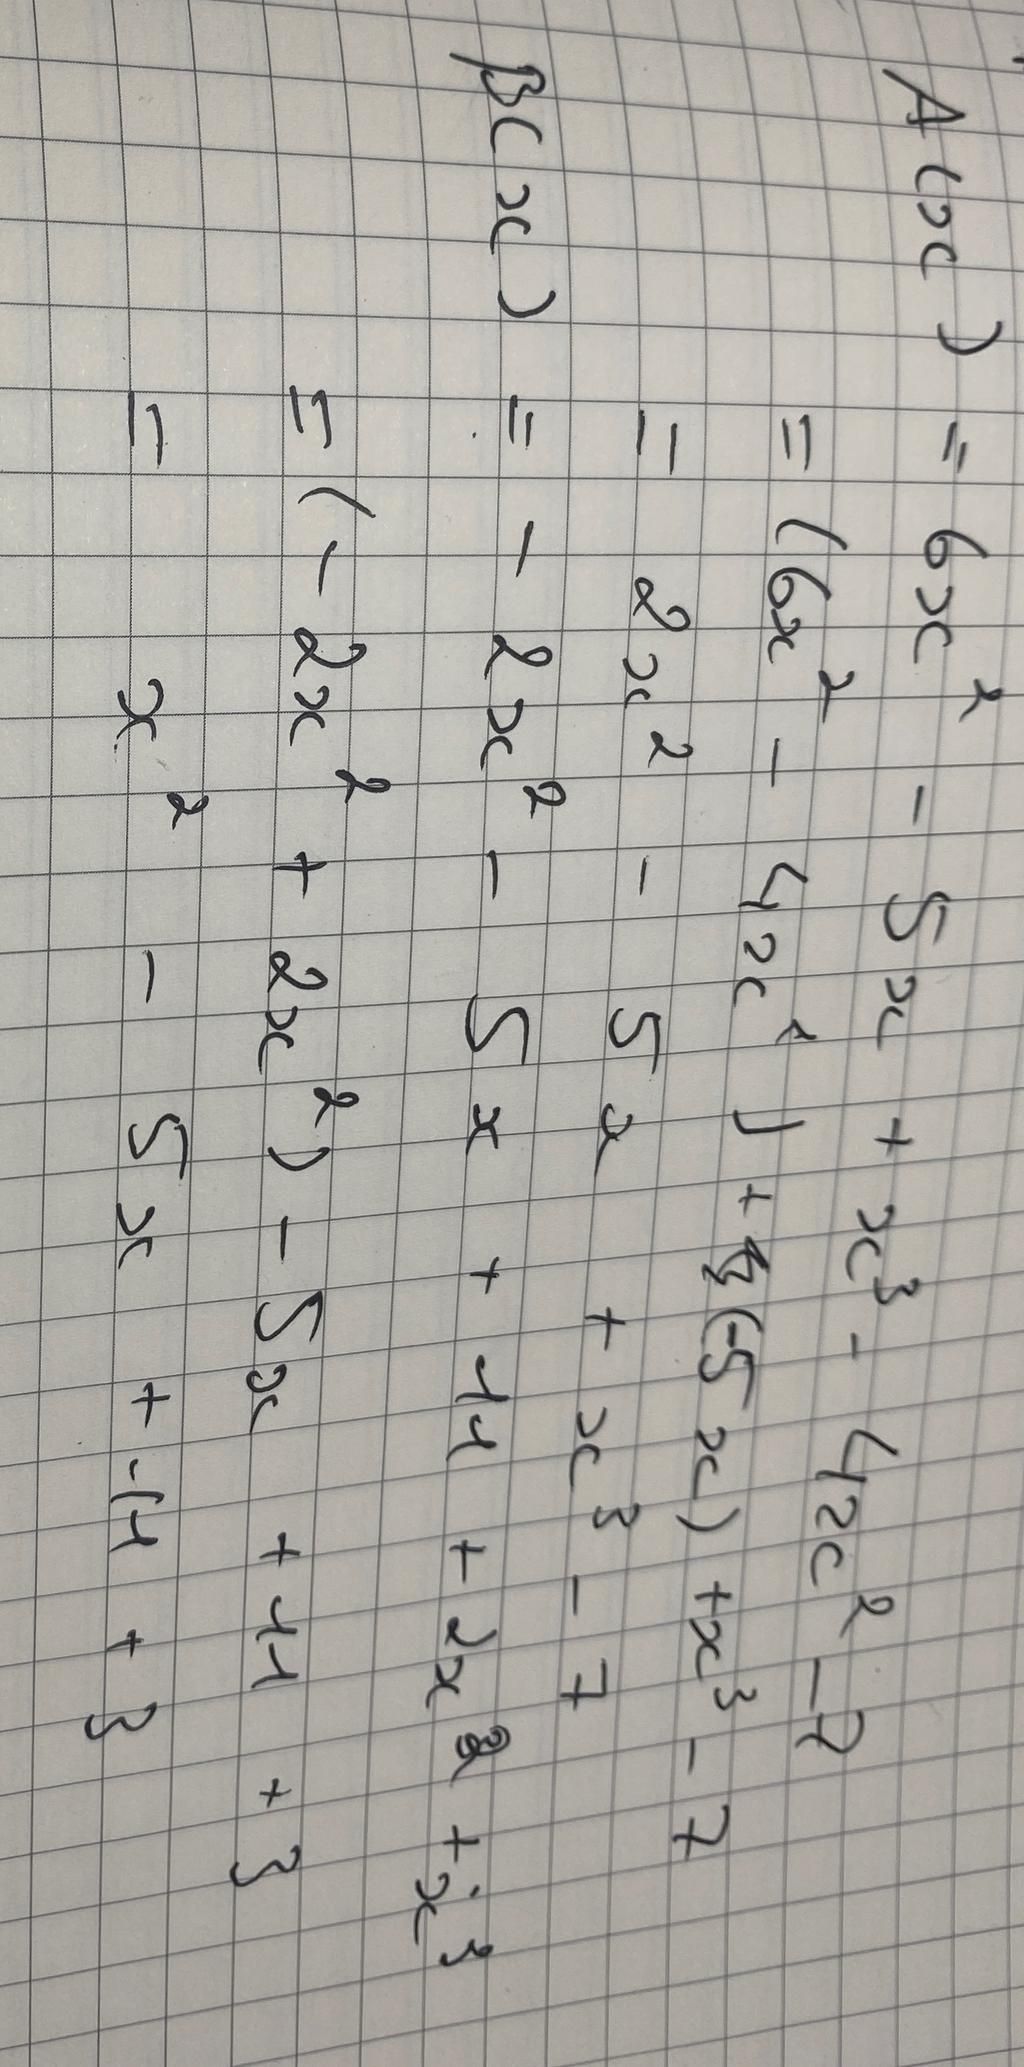 A(x) = 6x² - 5x + x³ - 4x² - 7
= (6x² - 4x²) + (-5x) + x³ - 7
= 2x² - 5x + x³ - 7
B(x) = - 2x² - 5x + 11 + 2x² + x³
= (- 2x² + 2x²) - 5x + 11 + 3
= x² - 5x + 11 + 3